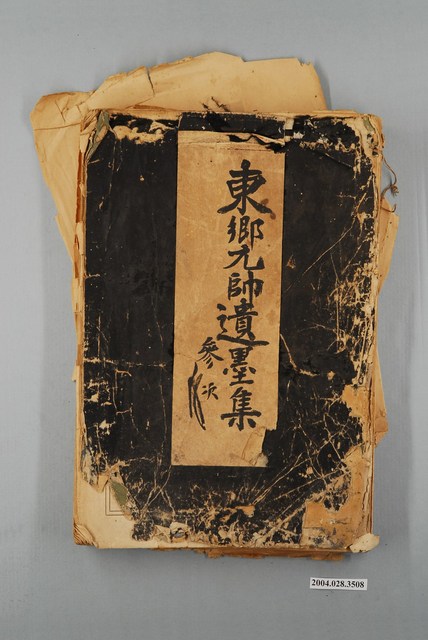 東鄉元帥遺墨集
2004.028.3508